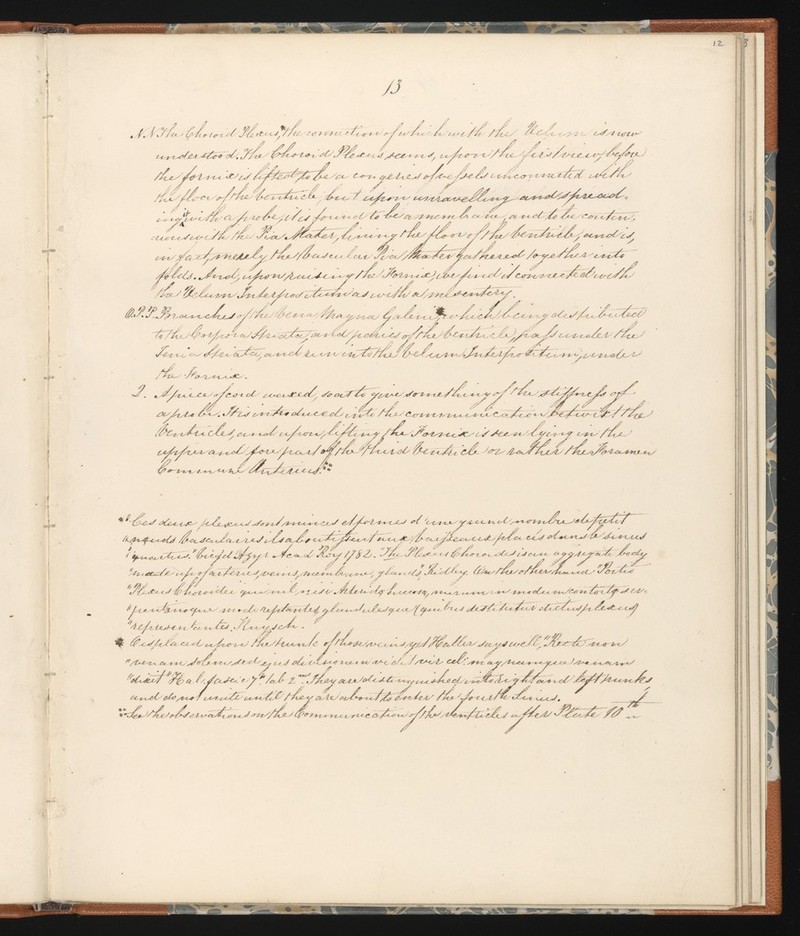 12
13
N.N The Choroid Plexus, the connection of which with the Velum is now
understood. The Choroid Plexus seems, upon the first view, before
the fornix is lifted to be a congeries of vessels unconnected with
the floor of the Ventricle, but upon unravelling and spread-
ing it with a probe, it is found to be a membrane, and to be contin-
uous with the Pia Mater, lining the floor of the Ventricle, and is,
in fact, merely the Vascular Pia Mater gathered together into
folds. And, upon raising the Fornix, we find it connected with
the Velum Interpositum as with a mesentery.
P.P. Branches of the Vena Magna Galeni, which being distributed
to the Corpora Striata, and paries of the Ventricle, pass under the
Tenia Striata, and run into the Velum Interpositum, under
the Fornix.
2. A piece of cord waxed, so as to give something of the stiffness of
a probe. It is introduced into the communication betwixt the
Ventricles, and upon lifting the Fornix is seen lying in the
upper and fore part of the third Ventricle or rather the Foramen
Commune Anterius.
"Ces deux plexus sont minces et formes d'une grand nombre de petit
Vasculaires ils aboutissent aux vaisseaux placés dans le sinus
"quartus" Vicq d'Azyr Acad Roy 1782. The Plexus Choroides is an aggregate body
"made up of arteries, veins, membrane, glands", Ridley. On the other hand "Portio
"Plexus Choroidei quae nil, nisi Arterios in modum contortas ser-
"pentinoque modo reptantes glandulasque (quibus destituitur dictus plexus)
"representantes, Ruysch.
* O is placed upon the trunk of those veins, yet Haller says well, "Recte non
"venam solem sed ejus divisionem vidit vir cel: magnamque venam
"dixit" Hal. fasc: 7th tab 2nd. They are distinguished into right and left trunks,
and do not unite until they are about to enter the fourth Sinus.
See the observations on the Communication of the ventricles after Plate 10th